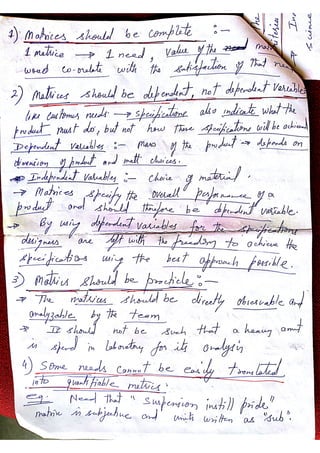 1) Matrices should be complete :-
1 metric → 1 need, value of the most
would co-orelate with the satisfaction of that need
2) Metrices should be dependent, not dependent variable
like customer needs → specifications also indicate what the
product must do, but not how those specifications will be achieved
Dependent Variables :- Mass of the product → depends on
dimension of product and matl choices.
Independent Variables :- choice of material
→ Matrices specify the overall performance of a
product and should therefore be dependent variable.
→ By using dependent variables for the specifications
designers are left with the freedom to achieve the
specifications using the best approach possible.
3) Matrics should be practicle :-
→ The matrices should be directly observable and
analyzable by the team
→ It should not be such that a heavy amt
is spend in laboratory for its analysis
4) Some needs cannot be easily translated
into quantifiable metrics.
eg: Need that "Suspension instill pride"
matric is subjective and units written as "sub".